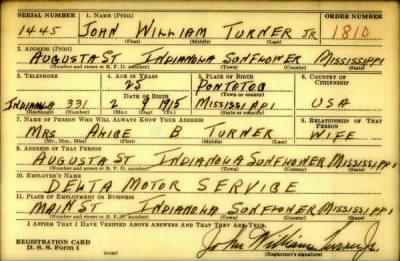 SERIAL NUMBER 1. NAME (Print) ORDER NUMBER
1445 JOHN WILLIAM TURNER JR 1810
(First) (Middle) (Last)
2. ADDRESS (Print)
AUGUSTA ST INDIANOLA SUNFLOWER MISSISSIPPI
(Number and street or R. F. D. number) (Town) (County) (State)
3. TELEPHONE 4. AGE IN YEARS 5. PLACE OF BIRTH 6. COUNTRY OF CITIZENSHIP
25 PONTOTOC
(Town or county)
DATE OF BIRTH
INDIANOLA 331 2 9 1915 MISSISSIPPI USA
(Exchange) (No.) (Mo.) (Day) (Yr.) (State or country)
7. NAME OF PERSON WHO WILL ALWAYS KNOW YOUR ADDRESS 8. RELATIONSHIP OF THAT PERSON
MRS ALICE B TURNER WIFE
(Mr., Mrs., Miss) (First) (Middle) (Last)
9. ADDRESS OF THAT PERSON
AUGUSTA ST INDIANOLA SUNFLOWER MISSISSIPPI
(Number and street or R. F. D. number) (Town) (County) (State)
10. EMPLOYER'S NAME
DELTA MOTOR SERVICE
11. PLACE OF EMPLOYMENT OR BUSINESS
MAIN ST INDIANOLA SUNFLOWER MISSISSIPPI
(Number and street or R. F. D. number) (Town) (County) (State)
I AFFIRM THAT I HAVE VERIFIED ABOVE ANSWERS AND THAT THEY ARE TRUE.
REGISTRATION CARD
D. S. S. Form 1 John William Turner Jr.
(Registrant's signature)